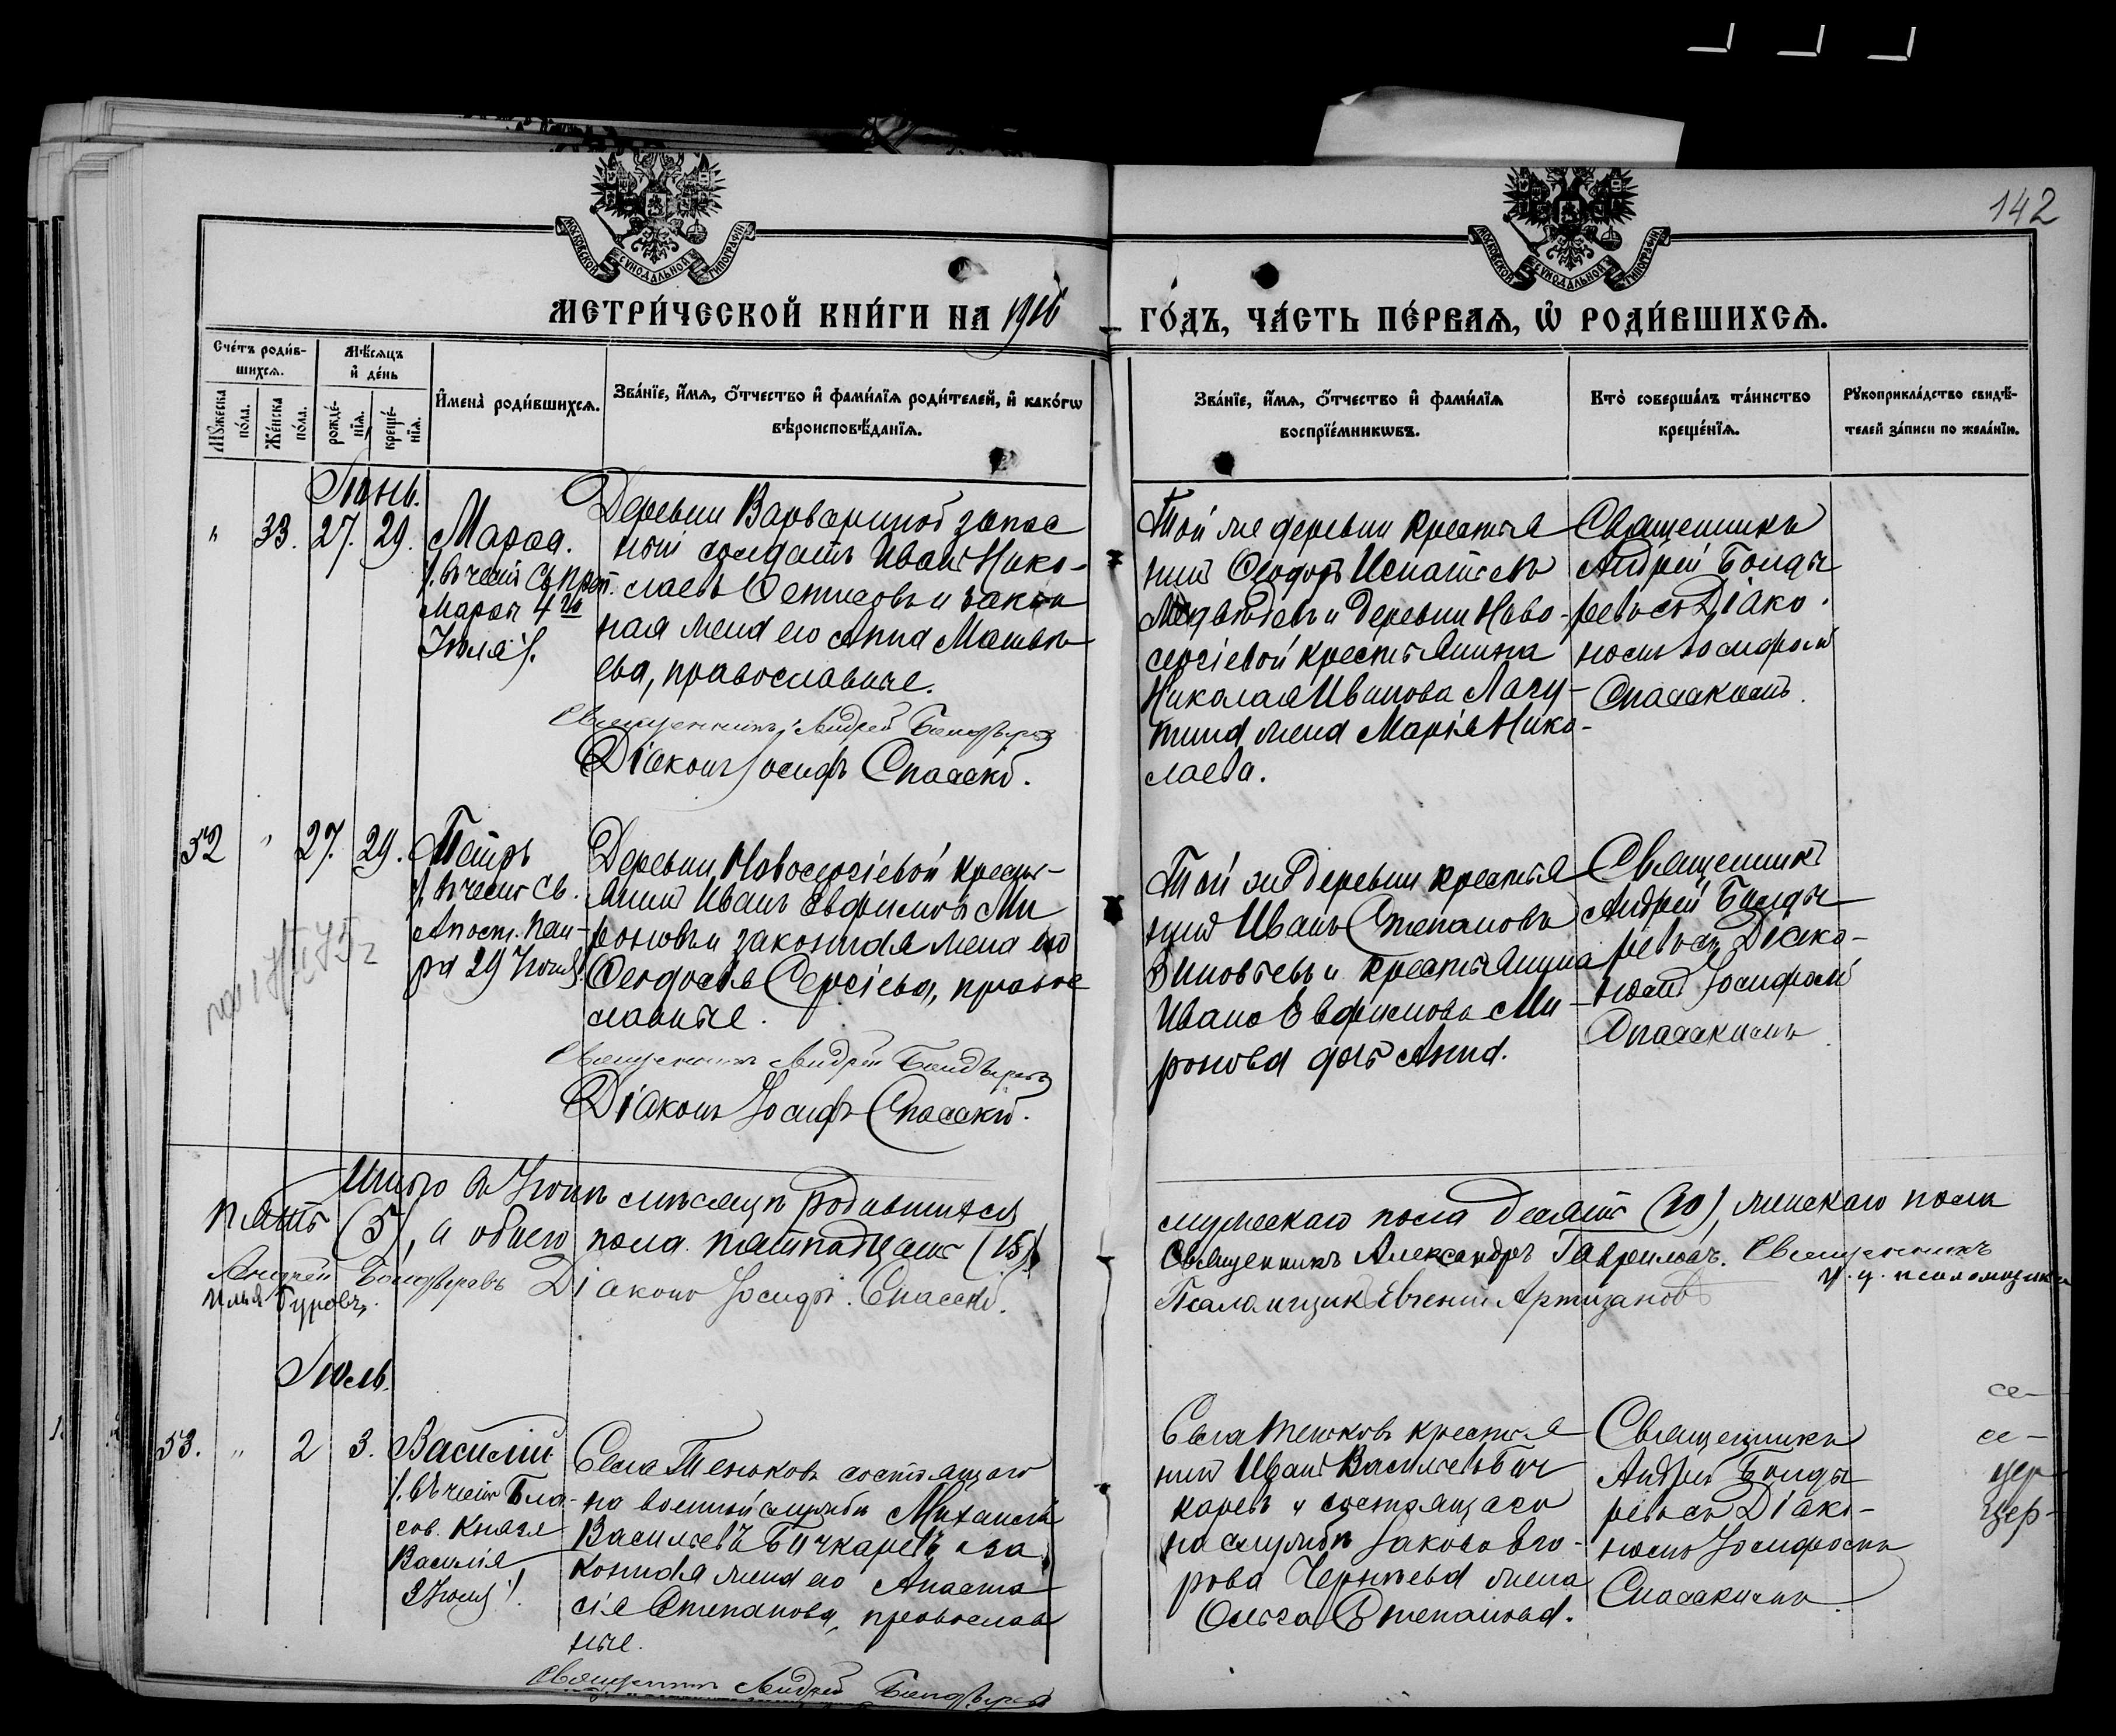 142
МОСКОВСКОЙ СѴНОДАЛЬНОЙ ТИПОГРАФІИ
МОСКОВСКОЙ СѴНОДАЛЬНОЙ ТИПОГРАФІИ
МЕТРИ́ЧЕСКОЙ КНИ́ГИ НА 1916
ГО́ДЪ, ЧА́СТЬ ПЕ́РВАѦ, Ѡ РОДИ́ВШИХСѦ.
Сче́тъ роди́в-
шихсѧ.
Мѣ́сѧцъ
и҆ де́нь
Мꙋ́жеска
по́ла.
Же́нска
по́ла.
рожде́-
нїѧ.
креще́-
нїѧ.
И҆мена̀ роди́вшихсѧ.
Зва́нїе, и҆́мѧ, ѻ҆́тчество и҆ фами́лїѧ роди́телей, и҆ како́гѡ
вѣроисповѣ́данїѧ.
Зва́нїе, и҆́мѧ, ѻ҆́тчество и҆ фами́лїѧ
воспрїе́мникѡвъ.
Кто̀ соверша́лъ та́инство
креще́нїѧ.
Рꙋкоприкла́дство свидѣ́-
телей за́писи по жела́нїю.
Іюнь.
" 33. 27. 29. Марѳа.
въ честь Св. Преп.
Марѳы 4го
Іюля
Деревни Варвариной запас
ной солдатъ Иванъ Нико-
лаевъ и закон
ная жена его Анна Матвѣ
ева, православные.
Священникъ Андрей Бондыревъ
Діаконъ Іосифъ Спасскій.
Той же деревни крестья
нинъ Ѳеодоръ Игнатьевъ
Медвѣдевъ и деревни Ново-
сергіевой крестьянина
Николая Иванова Лагу-
тина жена Марія Нико-
лаева.
Священникъ
Андрей Бонды
ревъ съ Діако
номъ Іосифомъ
Спасскимъ.
52 " 27. 29. Петръ
въ честь Св.
Апост. Пет-
ра 29 Іюня
Деревни Новосергіевой кресть-
янинъ Иванъ Евфимовъ Ми
роновъ и законная жена его
Ѳеодосія Сергіева, право
славные.
Священникъ Андрей Бондыревъ
Діаконъ Іосифъ Спасскій.
Той же деревни крестья
нинъ Иванъ Степановъ
Зиновьевъ и крестьянина
Ивана Евфимова Ми-
ронова дочь Анна.
Священникъ
Андрей Бонды
ревъ съ Діако-
номъ Іосифомъ
Спасскимъ.
Итого въ Іюнѣ мѣсяцѣ родившихся
мужескаго пола десять (10), женскаго пола
пять (5), а обоего пола пятнадцать (15).
Священникъ Александръ Гавриловъ. Священникъ
Андрей Бондыревъ Діаконъ Іосифъ Спасскій.
Псаломщикъ Евгений Артизановъ
И. д. псаломщика
Илья Гуровъ.
Іюль.
53. " 2 3. Василій
въ честь Бла-
гов. Князя
Василія
3 Іюля
Села Тенюковъ состоящаго
на военной службѣ Михаилъ
Васильевъ Бичкаревъ и за
конная жена его Анаста
сія Степанова, православ
ные.
Священникъ Андрей Бондыревъ
Села Тенюковъ крестья
нинъ Иванъ Васильевъ Бич
каревъ и состоящаго
на службѣ Іакова Его-
рова жена
Ольга Степанова.
Священникъ
Андрей Бонды
ревъ съ Діако-
номъ Іосифомъ
Спасскимъ.